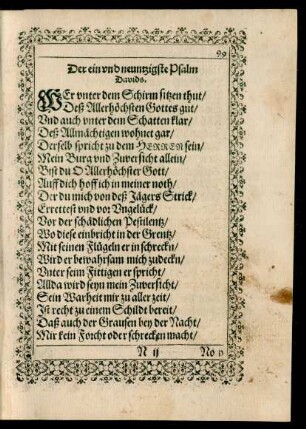 99
Der ein vnd neuntzigste Psalm
Davids.
WEr vnter dem Schirm sitzen thut/
Deß Allerhöchsten Gottes gut/
Vnd auch vnter dem Schatten klar/
Deß Allmächtigen wohnet gar/
Derselb spricht zu dem HERREN sein/
Mein Burg vnd Zuversicht allein/
Bist du O Allerhöchster Gott/
Auff dich hoff ich in meiner noth/
Der du mich von deß Jägers Strick/
Errettest vnd vor Vngelück/
Vor der schädlichen Pestilentz/
Wo diese einbricht in der Grentz/
Mit seinen Flügeln er in schreckn/
Wird er bewahrsam mich zudeckn/
Vnter seim Fittigen er spricht/
Allda wird seyn mein Zuversicht/
Sein Warheit mir zu aller zeit/
Ist recht zu einem Schildt bereit/
Daß auch der Grausen bey der Nacht/
Mir kein Forcht oder schrecken macht/
N ij